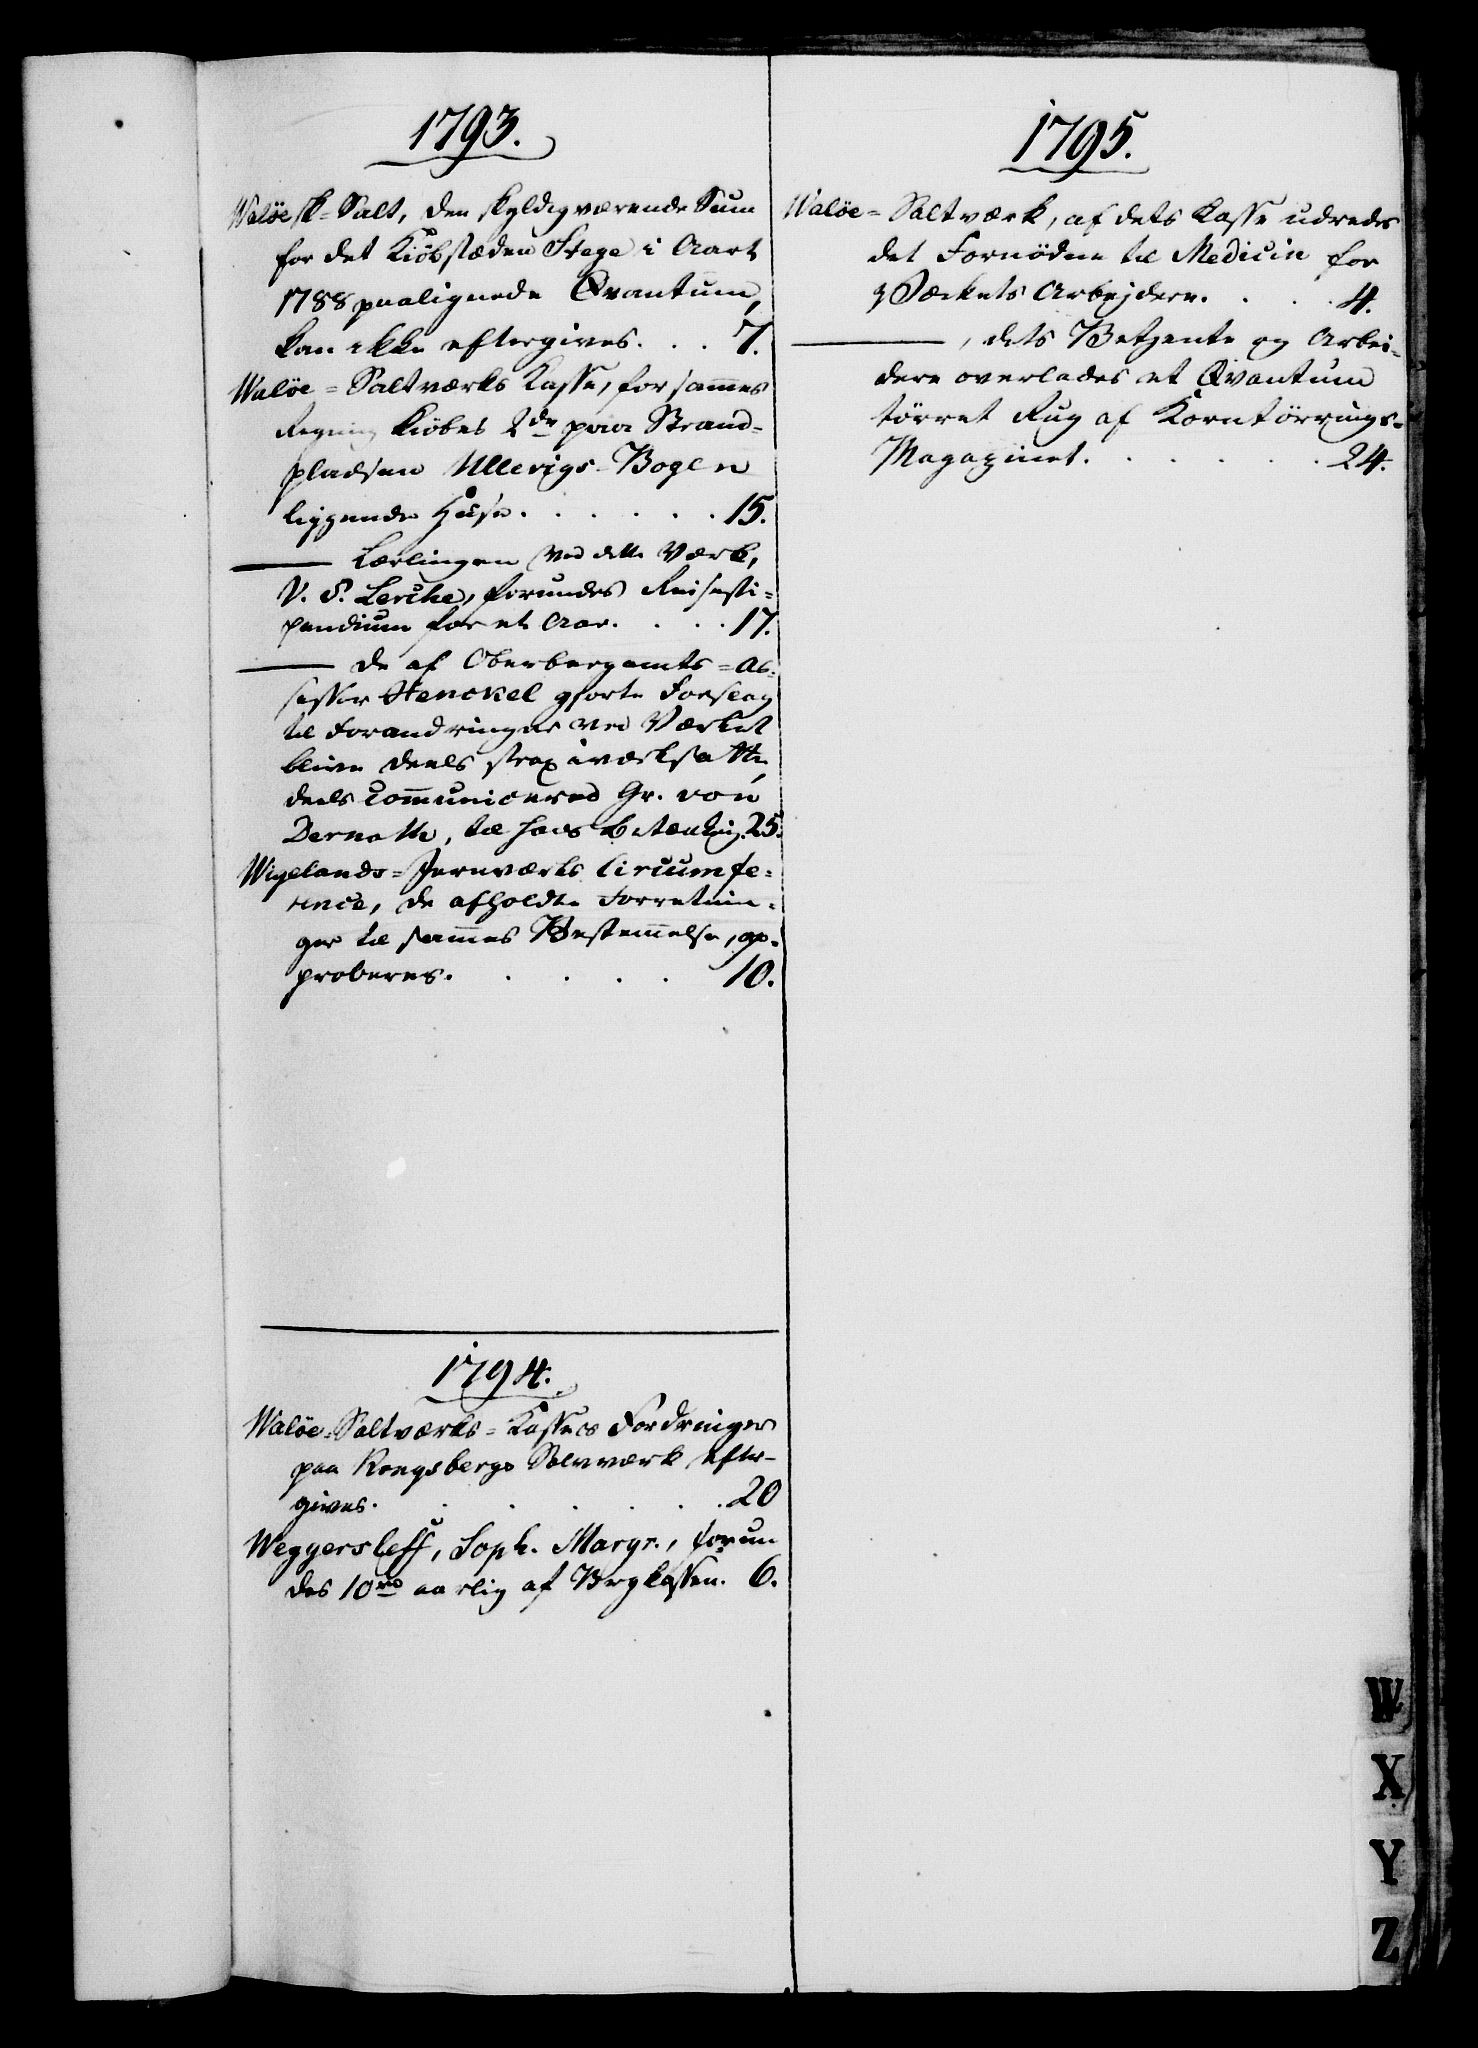 1793.
Waløesk-Salt, den skyldigværende Sum
for det Kiöbstæden Stege i Aaret
1788 paalignede Qvantum,
kan ikke eftergives. . . 7.
Waløe-Saltværks Kasse, for sammes
Regning kiöbes 2de paa Strand-
pladsen Ullerigs-Bogen
liggende Huse. . . . . . 15.
——— Lærlingen ved dette Værk,
V. S. Lerche, forundes Reisesti-
pendium for et Aar. . . . 17.
——— de af Oberbergamts-As-
sessor Henckel giorte Forslag
til Forandringer ved Værket
blive deels strax iværksatte,
deels communicered Gr. von
Dernath, til hans Betænkng. 25.
Wigelands-Jernværks Circumfe-
rence, de afholdte Forretnin-
ger til sammes Bestemmelse, ap-
proberes. . . . . 10.
1794.
Waløe-Saltværks-Kasses Fordringer
paa Kongsbergs Sølvværk efter-
gives. . . . . . 20
Weggersleff, Soph. Margr., forun
des 10 rd aarlig af Brgkassen. 6.
1795.
Waløe-Saltværk, af dets Kasse udredes
det Fornødne til Medicin for
Værkets Arbejdere. . . . 4.
———, dets Betjente og Arbei-
dere overlades et Qvantum
törret Rug af Korntörrings-
Magazinet. . . . . . 24.
W
X
Y
Z